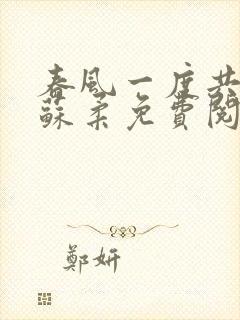 春風一度共
蘇柔免費閱
鄭妍